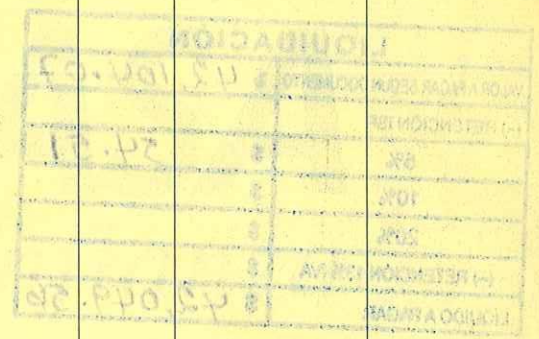 LIQUIDACIÓN
VALOR A PAGAR SEGUN DOCUMENTO $ 42,104.07
(-) RETENCION ISR
5% $ 54.51
10% $
20% $
(-) RETENCION IVA $
LIQUIDO A PAGAR $ 42,049.56